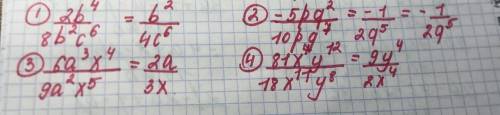 ① 2b⁴/8b²c⁶ = b²/4c⁶ ② -5pq²/10pq⁷ = -1/2q⁵ = -1/2q⁵
③ 6a³x⁴/9a²x⁵ = 2a/3x ④ 81x⁷y¹²/18x¹¹y⁸ = 9y⁴/2x⁴